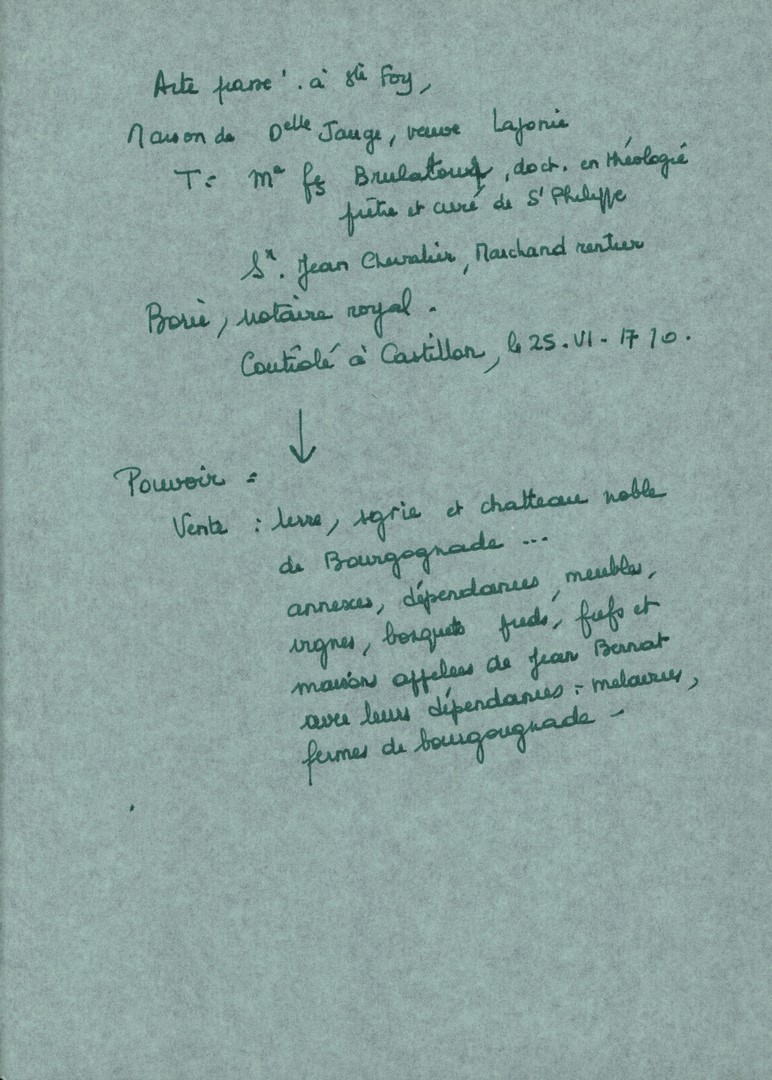 Acte passé . à Ste Foy,
Maison de Delle Jauge, veuve Lajonie
T = Me fs Brulatour, doct. en théologie
prêtre et curé de St Philippe
Sr. Jean Chevalier, Marchand rentier
Borie, notaire royal .
Contrôlé à Castillon, le 25.VI-1710.
↓
Pouvoir =
Vente : terre, sgrie et chatteau noble
de Bourgognade ...
annexes, dépendances, meubles,
vignes, bosquets, fiefs et
maisons appelées de Jean Bernat
avec leurs dépendances : métairies,
fermes de bourgougnade -